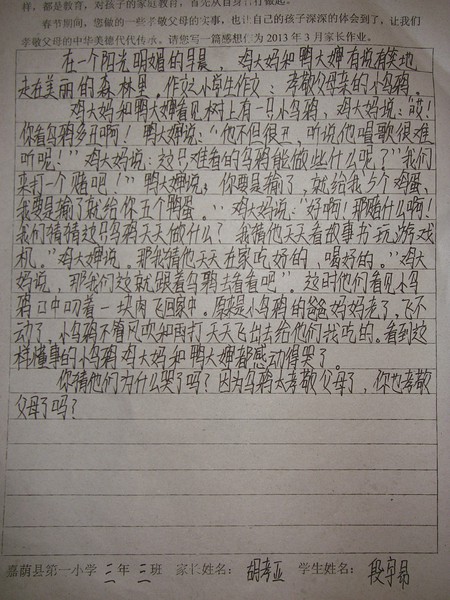 样，都是教育，对孩子的家庭教育，首先从自身言行做起。
春节期间，您做的一些孝敬父母的实事，也让自己的孩子深深的体会到了，让我们
孝敬父母的中华美德代代传承。请您写一篇感想作为2013年3月家长作业。
在一个阳光明媚的早晨，鸡大妈和鸭大婶有说有笑地
走在美丽的森林里。作文小学生作文：孝敬父母亲的小乌鸦。
鸡大妈和鸭大婶看见树上有一只小乌鸦，鸡大妈说：“咳！
你看乌鸦多丑啊！鸭大婶说：“他不但很丑，听说他唱歌很难
听呢！”鸡大妈说：这只难看的乌鸦能做些什么呢？”“我们
来打一个赌吧！”鸭大婶说：你要是输了，就给我5个鸡蛋，
我要是输了就给你五个鸭蛋。”鸡大妈说：“好啊！那赌什么啊！
我们猜猜这只乌鸦天天做什么？我猜他天天看故事书玩游戏
机。”鸡大婶说。那我猜他天天在家吃好的，喝好的。”鸡大
妈说，那我们这就跟着乌鸦去看看吧”。这时他们看见小乌
鸦口中叨着一块肉飞回家中。原来是小乌鸦的爸爸妈妈老了，飞不
动了，小乌鸦不管风吹和雨打天天飞出去给他们找吃的。看到这
样懂事的小乌鸦鸡大妈和鸭大婶都感动得哭了。
你猜他们为什么哭了吗？因为乌鸦太孝敬父母了，你也孝敬
父母了吗？
嘉荫县第一小学 三年 三班 家长姓名：胡孝亚 学生姓名：段宇昂